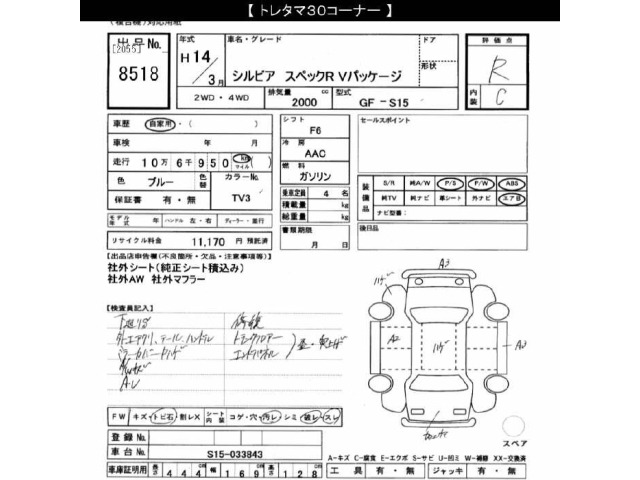 【 トレタマ30コーナー 】
(複合機)対応用紙
出品No.
[2055]
8518
年式
H14/3月
車名・グレード
シルビア スペックR Vパッケージ
ドア
形状
2WD・4WD
排気量
2000 cc
型式
GF－S15
評価点
R
内装
C
車歴 自家用・( )
車検 年 月
走行 10万6千950 km マイル ( )
色 ブルー 色替 カラーNo. TV3
保証書 有・無
モデル年式 年 ハンドル 左・右 ディーラー・並行
リサイクル料金 11,170 円 預託済
シフト
F6
冷房
AAC
燃料
ガソリン
乗車定員 4 名
積載量 kg
総重量 kg
書類期限
月 日
セールスポイント
装備品
S/R 純A/W P/S P/W ABS
純TV 純ナビ 革シート 外ナビ エアB
ナビ型番:
後日品
[出品店申告欄(不良箇所・欠品・注意事項等)]
社外シート(純正シート積込み)
社外AW 社外マフラー
【検査員記入】
下廻りサビ
修複
A3
A2
A3
FW キズ・トビ石・割レX シート内装 コゲ・穴・汚レ・シミ・破レ・スレ
登録No.
車台No. S15-033843
車庫証明用 長さ 444 cm 幅 169 cm 高さ 128 cm
スペア
A-キズ C-腐食 E-エクボ S-サビ U-凹ミ W-補修 XX-交換済
工具 有・無 ジャッキ 有・無